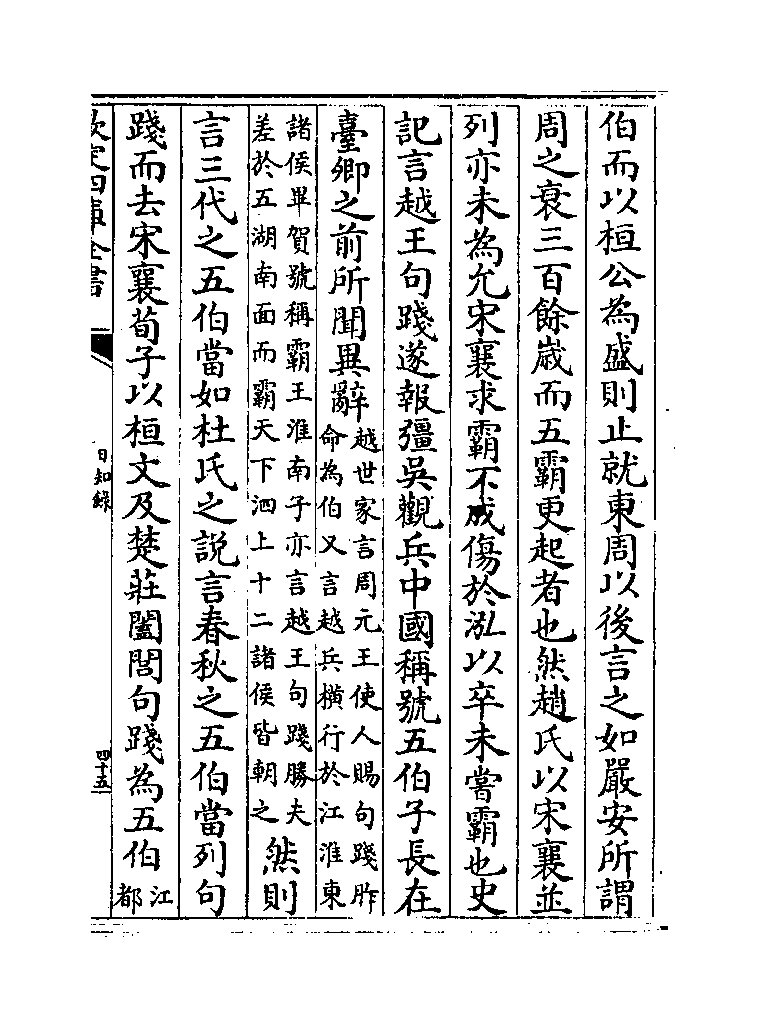 伯而以桓公為盛則止就東周以後言之如嚴安所謂
周之衰三百餘歲而五霸更起者也然趙氏以宋襄並
列亦未為允宋襄求霸不成傷於泓以卒未嘗霸也史
記言越王句踐遂報彊吳觀兵中國稱號五伯子長在
臺卿之前所聞異辭越世家言周元王使人賜句踐胙
命為伯又言越兵橫行於江淮東
諸侯畢賀號稱霸王淮南子亦言越王句踐勝夫
差於五湖南面而霸天下泗上十二諸侯皆朝之然則
言三代之五伯當如杜氏之說言春秋之五伯當列句
踐而去宋襄荀子以桓文及楚莊闔閭句踐為五伯江
都
欽定四庫全書
日知錄
四十五